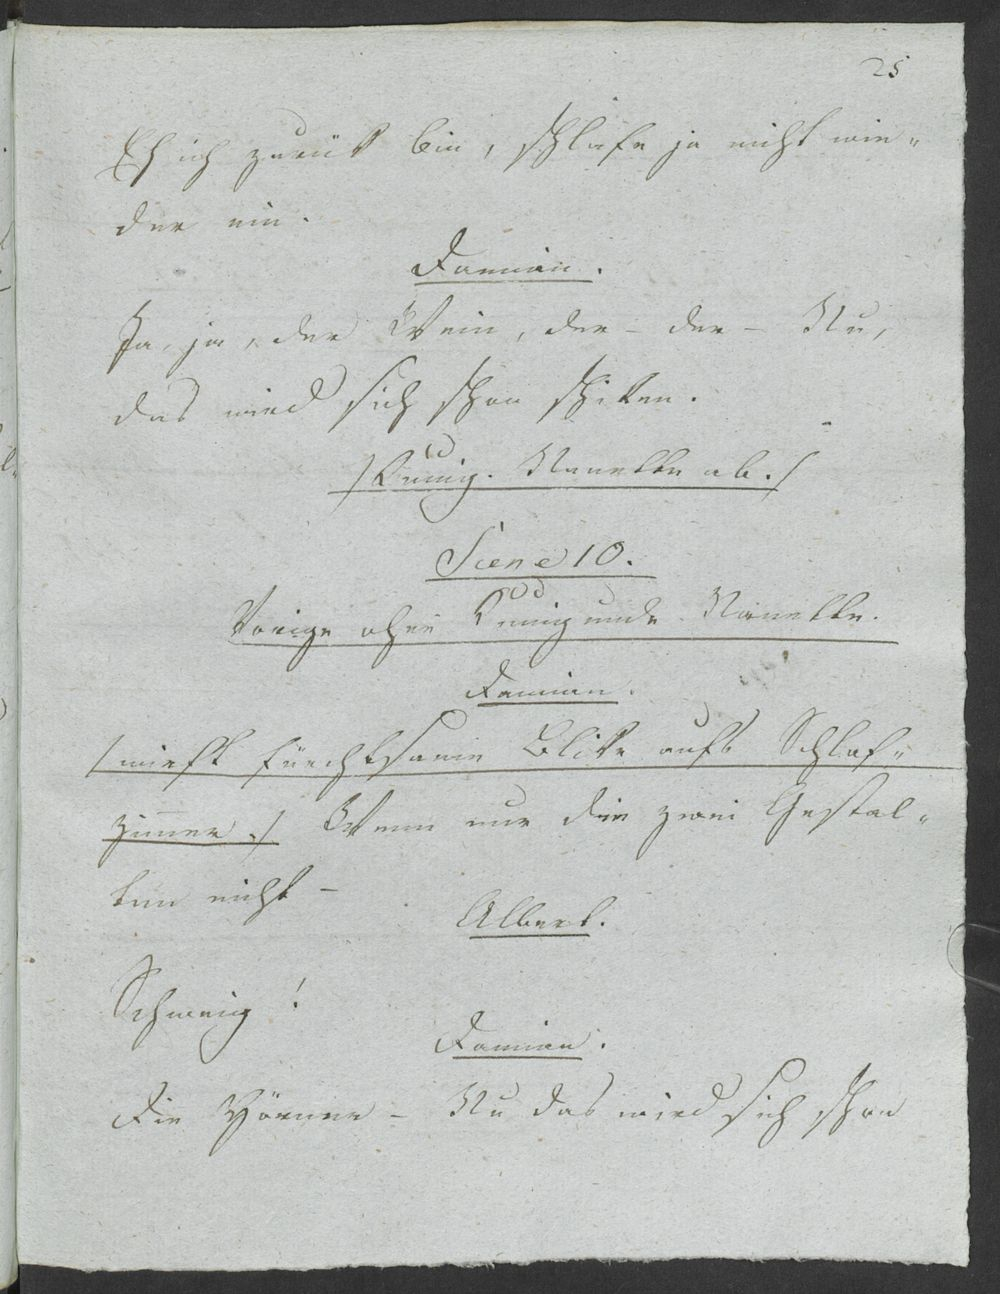 25
Eh ich zurük bin, schlafe ja nicht wie=
der ein.
Damian.
Ja, ja, der Wein, der – der – Nu,
das wird sich schon schiken.
/Kunig. Nanette ab./
Scene 10.
Vorige ohne Kunigunde Nanette.
Damian.
/wirft furchtsame Blike aufs Schlaf=
zimmer./ Wenn nur die zwei Gestal=
ten nicht –
Albert.
Schweig!
Damian.
Die Hörner – Nu das wird sich schon